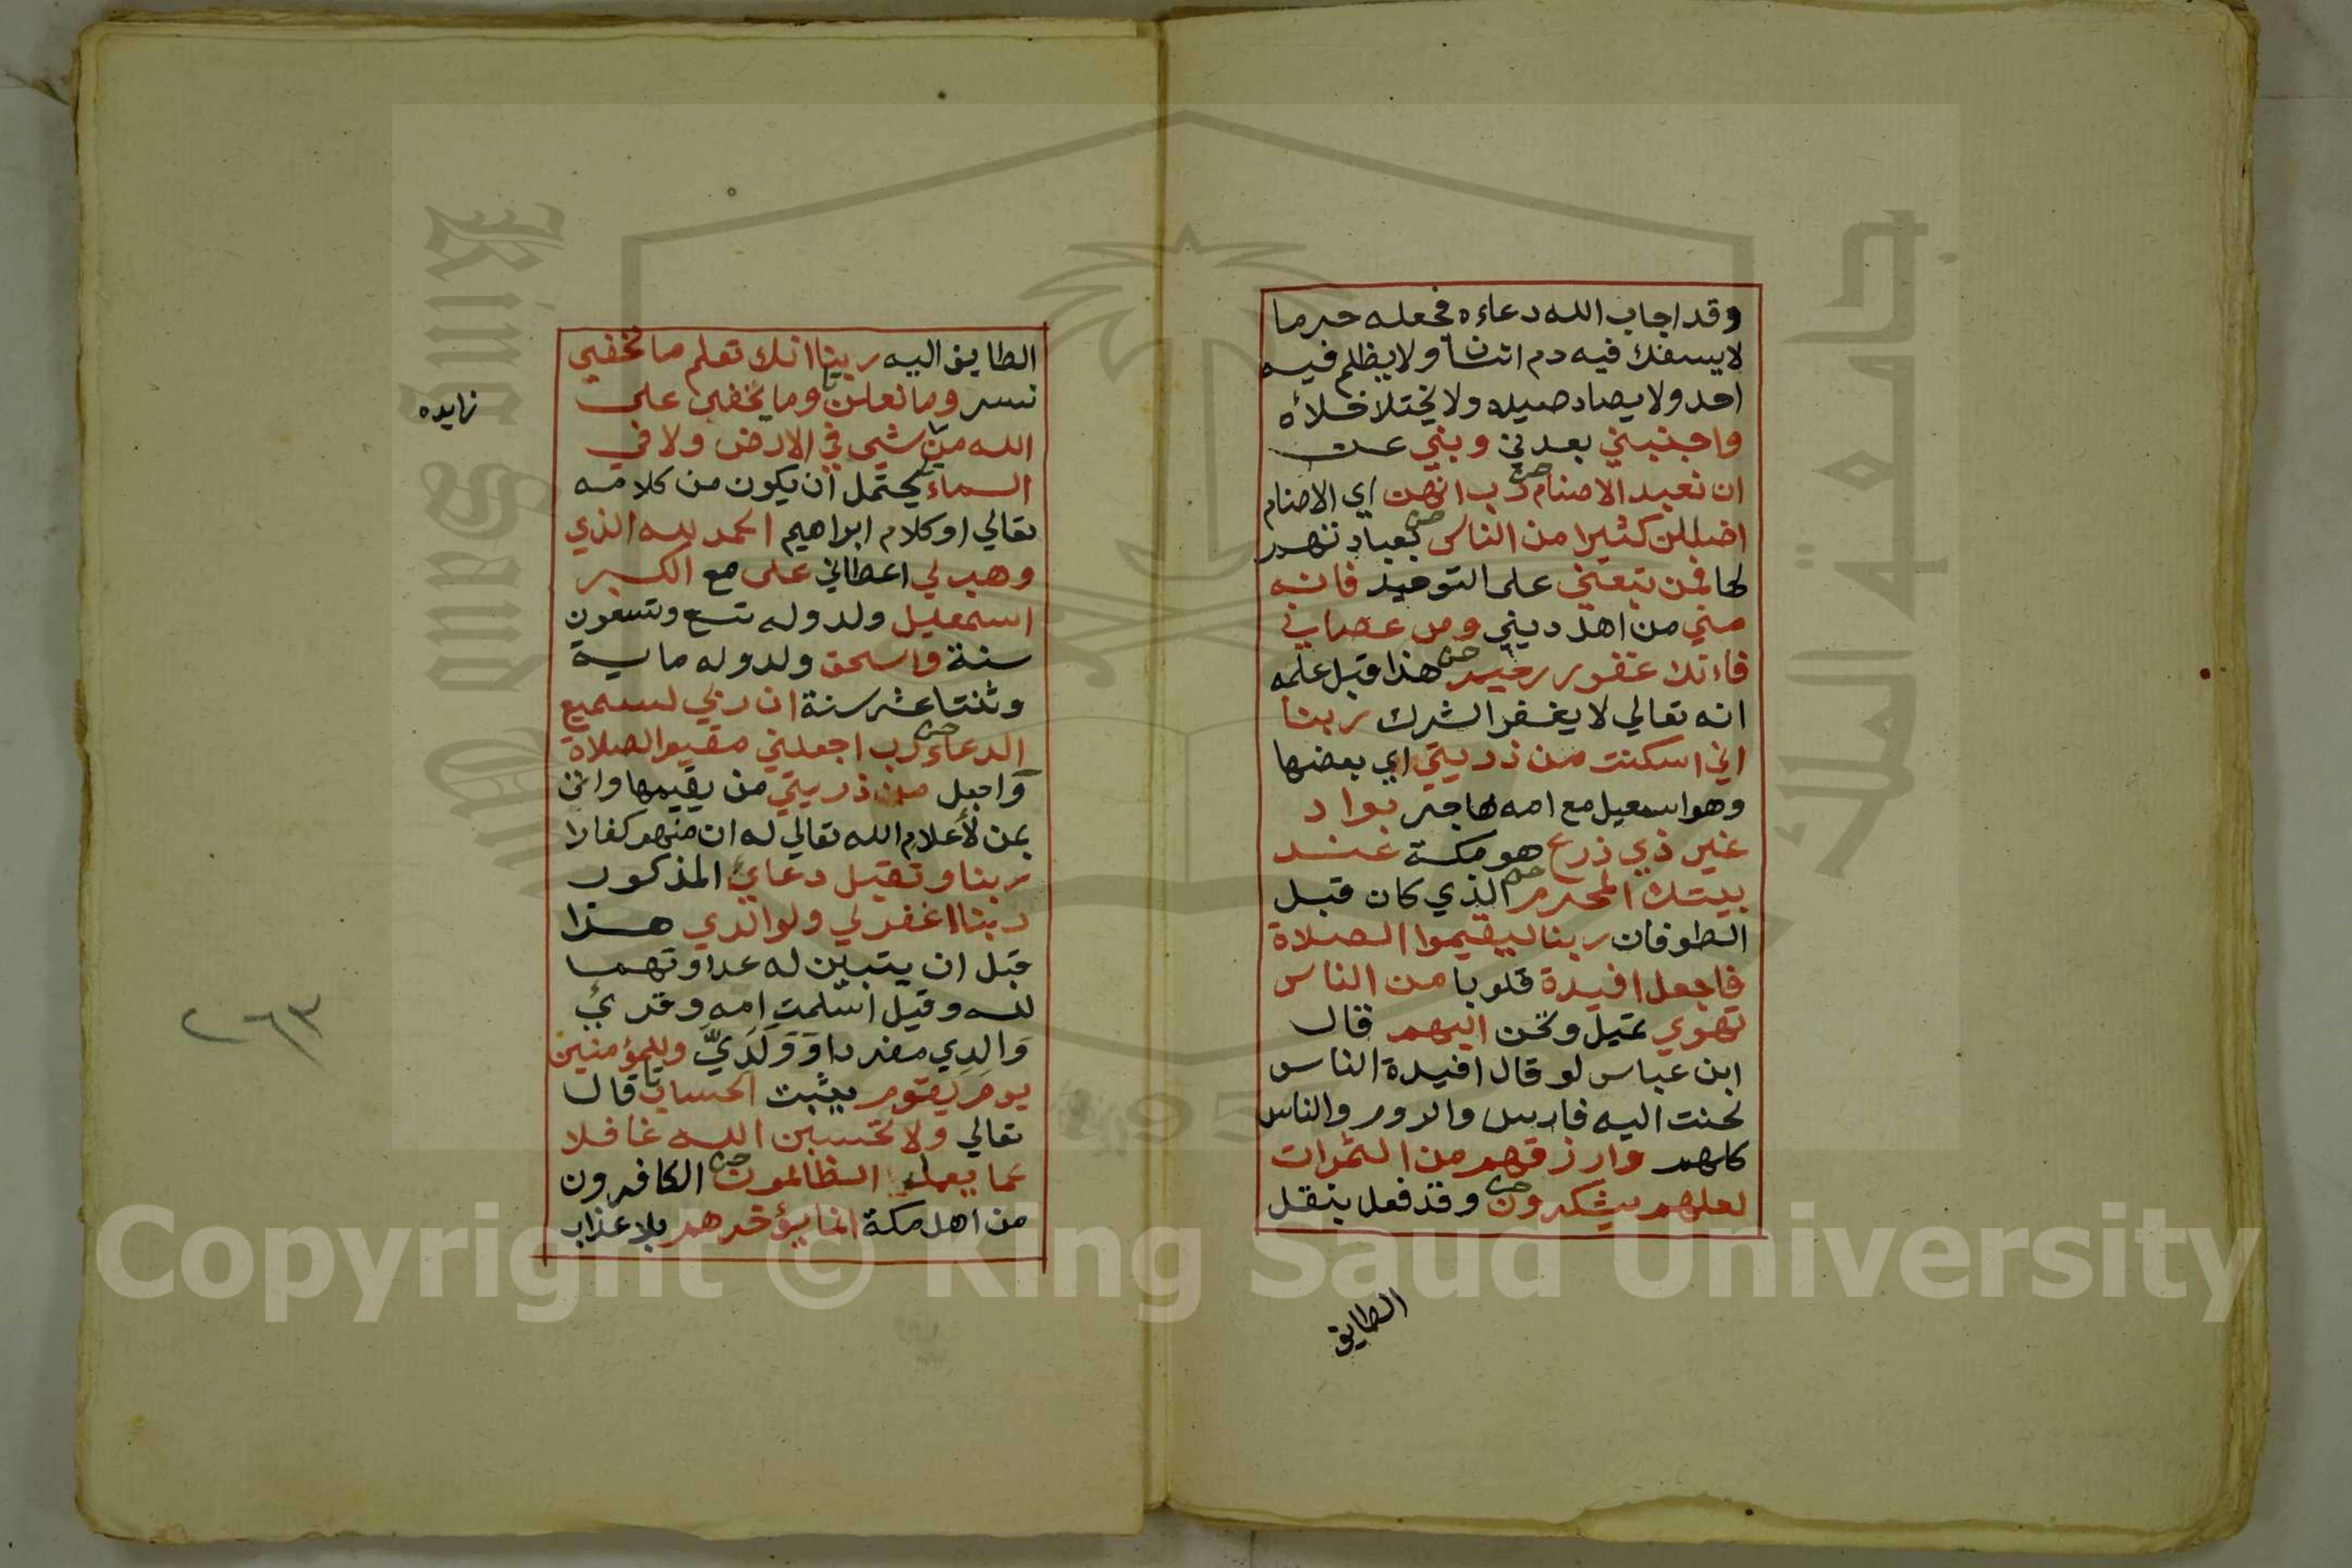 وقد اجاب الله دعاءه فجعله حرما
لايسفك فيه دم انسان ولا يظلم فيه
احد ولا يصاد صيده ولا يختلا خلاه
واجنبني بعدني وبني عن
ان نعبد الاصنام رب انهن اي الاصنام
اضللن كثيرا من الناس بعبادتهم
لها فمن تبعني على التوحيد فانه
مني من اهل ديني ومن عصاني
فانك غفور رحيم هذا قبل علمه
انه تعالي لا يغفر الشرك ربنا
اني اسكنت من ذريتي اي بعضها
وهو اسمعيل مع امه هاجر بواد
غير ذي زرع هو مكة عند
بيتك المحرم الذي كان قبل
الطوفان ربنا ليقيموا الصلاة
فاجعل افيدة قلوبا من الناس
تهوي تميل وتحن اليهم قال
ابن عباس لو قال افيدة الناس
لحنت اليه فارس والروم والناس
كلهم وارزقهم من الثمرات
لعلهم يشكرون وقد فعل بنقل
الطايف
الطايف اليه ربنا انك تعلم ما نخفي
نسر وما نعلن وما يخفى على
الله من شي في الارض ولا في
السماء يحتمل ان يكون من كلامه
تعالي او كلام ابراهيم الحمد لله الذي
وهب لي اعطاني على مع الكبر
اسمعيل ولد وله تسع وتسعون
سنة واسحق ولد وله ماية
وثنتا عشر سنة ان ربي لسميع
الدعاء رب اجعلني مقيم الصلاة
واجعل من ذريتي من يقيمها واتى
بمن لأعلام الله تعالي له ان منهم كفارا
ربنا وتقبل دعاي المذكور
ربنا اغفر لي ولوالدي هذا
قبل ان يتبين له عداوتهما
لله وقيل اسلمت امه وقرئ
والدي مفردا وولدي وللمؤمنين
يوم يقوم يثبت الحساب قال
تعالي ولا تحسبن الله غافلا
عما يعمل الظالمون الكافرون
من اهل مكة انما يؤخرهم بلا عذاب
زايده
٢٦٣
Copyright © King Saud University
King Saud University
جامعة الملك سعود
195